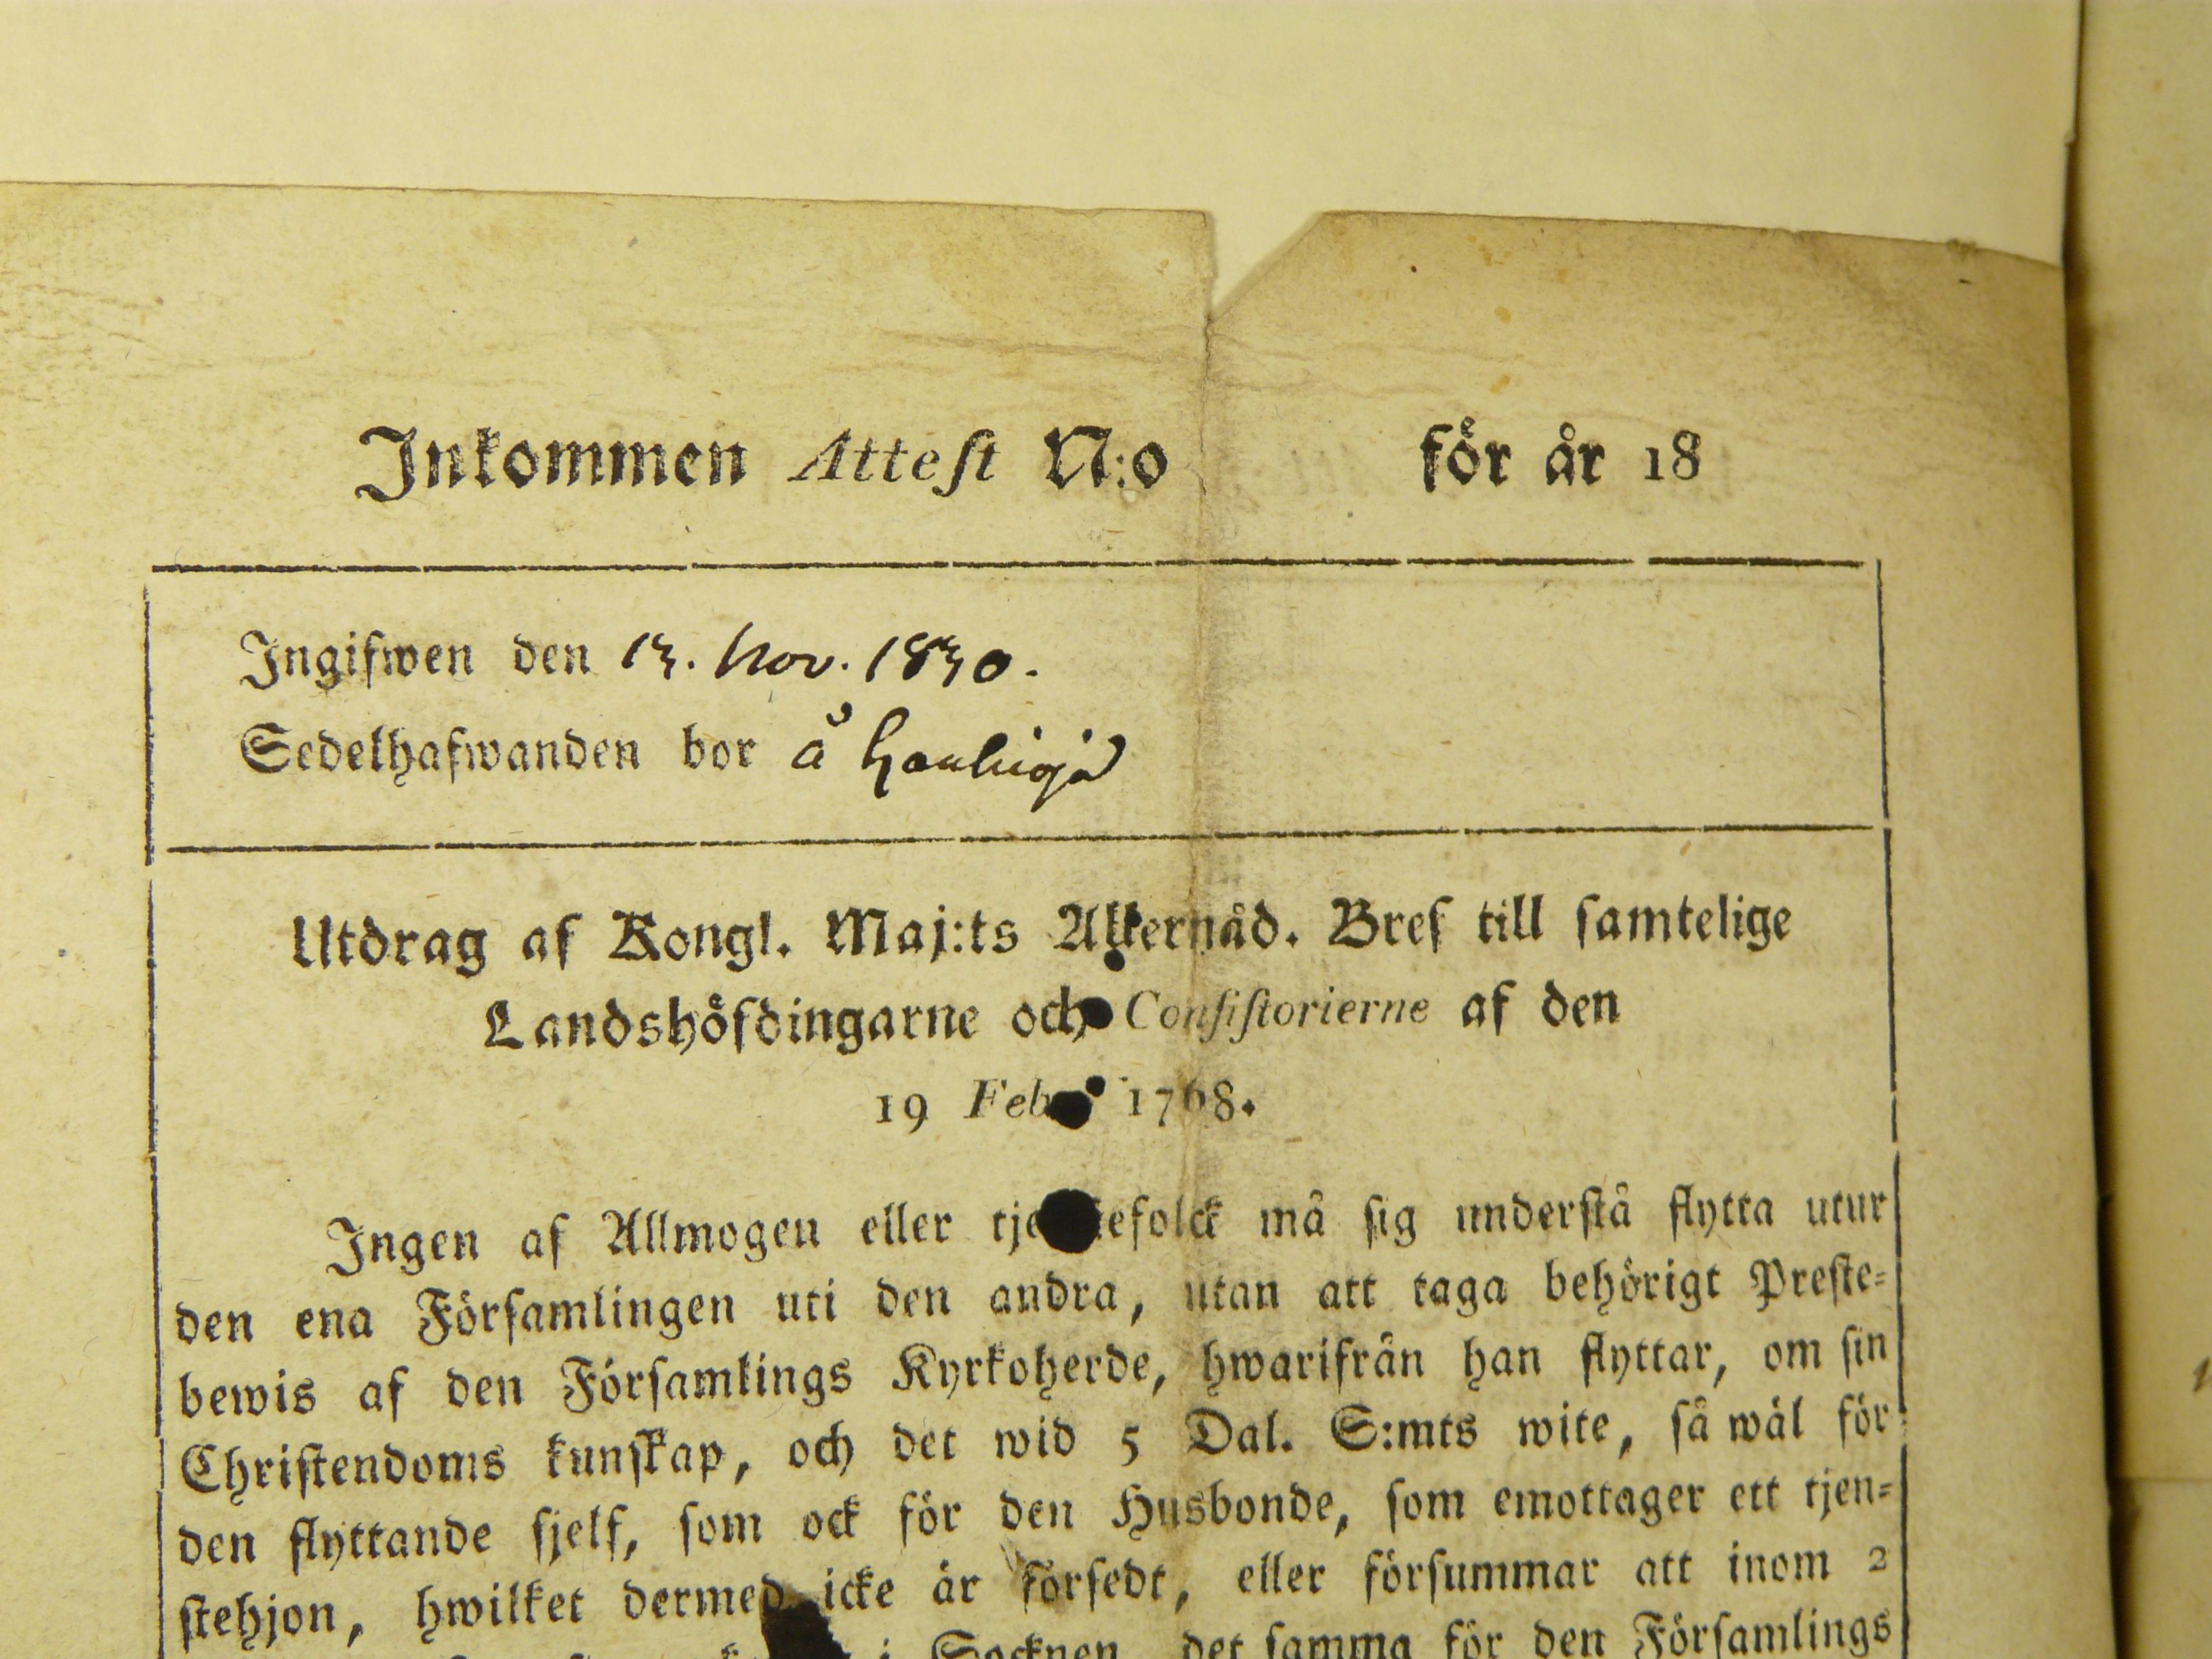 Inkommen Attest N:o för år 18
Ingifwen den 13. Nov. 1830.
Sedelhafwanden bor å
Utdrag af Kongl. Maj:ts Allernåd. Bref till samtelige
Landshöfdingarne och Consistorierne af den
19 Feb 1768.
Ingen af Allmogen eller tje efolck må sig understå flytta utur
den ena Församlingen uti den andra, utan att taga behörigt Preste-
bewis af den Församlings Kyrkoherde, hwarifrån han flyttar, om sin
Christendoms kunskap, och det wid 5 Dal. S:mts wite, så wäl för
den flyttande sjelf, som ock för den Husbonde, som emottager ett tjen-
stehjon, hwilket dermed icke är försedt, eller försummar att inom 2
i Socknen det samma för den Församlings